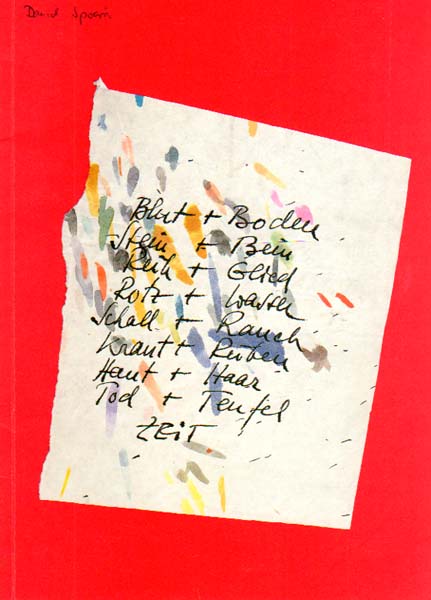 Daniel Spoerri
Blut + Boden
Stein + Bein
Reih + Glied
Rotz + Wasser
Schall + Rauch
Kraut + Rüben
Haut + Haar
Tod + Teufel
ZEIT